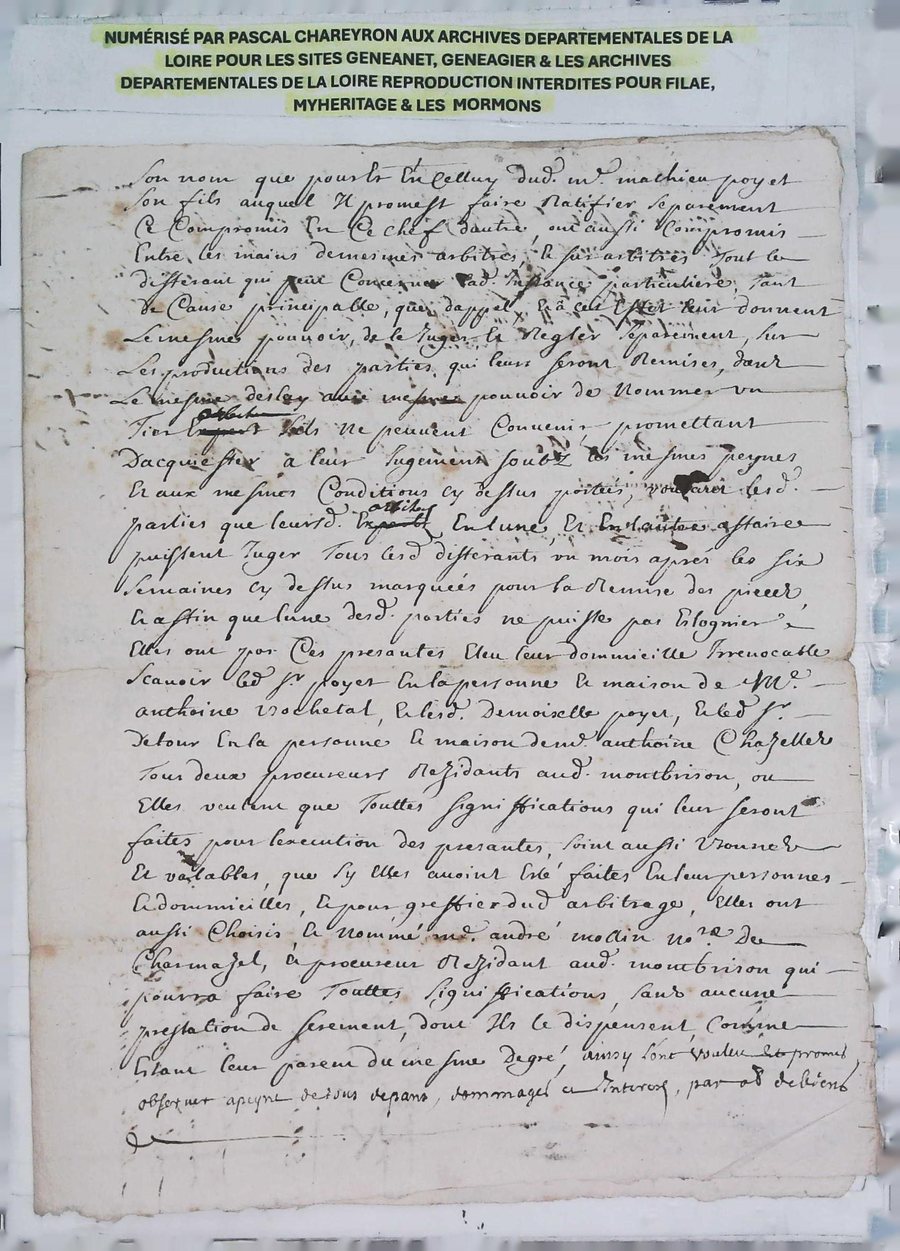 NUMÉRISÉ PAR PASCAL CHAREYRON AUX ARCHIVES DEPARTEMENTALES DE LA
LOIRE POUR LES SITES GENEANET, GENEAGIER & LES ARCHIVES
DEPARTEMENTALES DE LA LOIRE REPRODUCTION INTERDITES POUR FILAE,
MYHERITAGE & LES MORMONS
son nom que pour Et En Celluy dud. mr. mathieu poyet
son fils auquel Il promest faire Ratifier separement
Ce Compromis En Ce chef dautre, ont aussi Compromis
Entre les mains demesmes arbitres, & surarbitres Tout le
differant qui peut Concerner lad. Instance particuliere, tant
de Cause principalle, que dappel, Et à cest Effet leur donnent
Le mesme pouvoir, de le Juger Et Regler separement, sur
Les productions des parties qui leurs seront Remises, dans
Le mesme deslay avec mesme pouvoir de Nommer un
Tier Expert arbitre sils ne peuvent Convenir, promettant
Dacquiester a leur Jugement soubz les mesmes peynes
Et aux mesmes Conditions cy dessus portées, lesd.
parties que leursd. Experts arbitres En lune, Et En lautre affaire
puissent Juger Tous lesd. differants un mois aprés les six
semaines cy dessus marquées pour la Remise des pieces
Et affin que lune desd. parties ne puisse pas Eslogner
Elles ont par Ces presantes Eleu leur dommicille Irrevocable
Scavoir led. sr. poyet En la personne Et maison de Me.
anthoine Rochetal, Et lesd. Demoiselle poyet, Et led. sr.
Detour En la personne Et maison de me. anthoine Chazelles
Tous deux procureurs Rezidants aud. montbrison, ou
Elles veulent que Touttes significations qui leur seront
faites pour lexecution des presantes, soint aussi bonnes
Et vallables, que sy Elles avoint Esté faites En leur personnes
Et dommicilles, Et pour greffier dud. arbitrage, Elles ont
aussi Choisis Et Nommé me. andré mollin nore. De
Charmazel, Et procureur Rezidant aud. montbrison qui
pourra faire Touttes significations, sans aucune
prestation de serement, dont Ils le dispensent, Comme
Estant leur parent du mesme degré, ainsy lont voulleu Et promis
observer a peyne de tous depans, dommages et Interests, par de biens